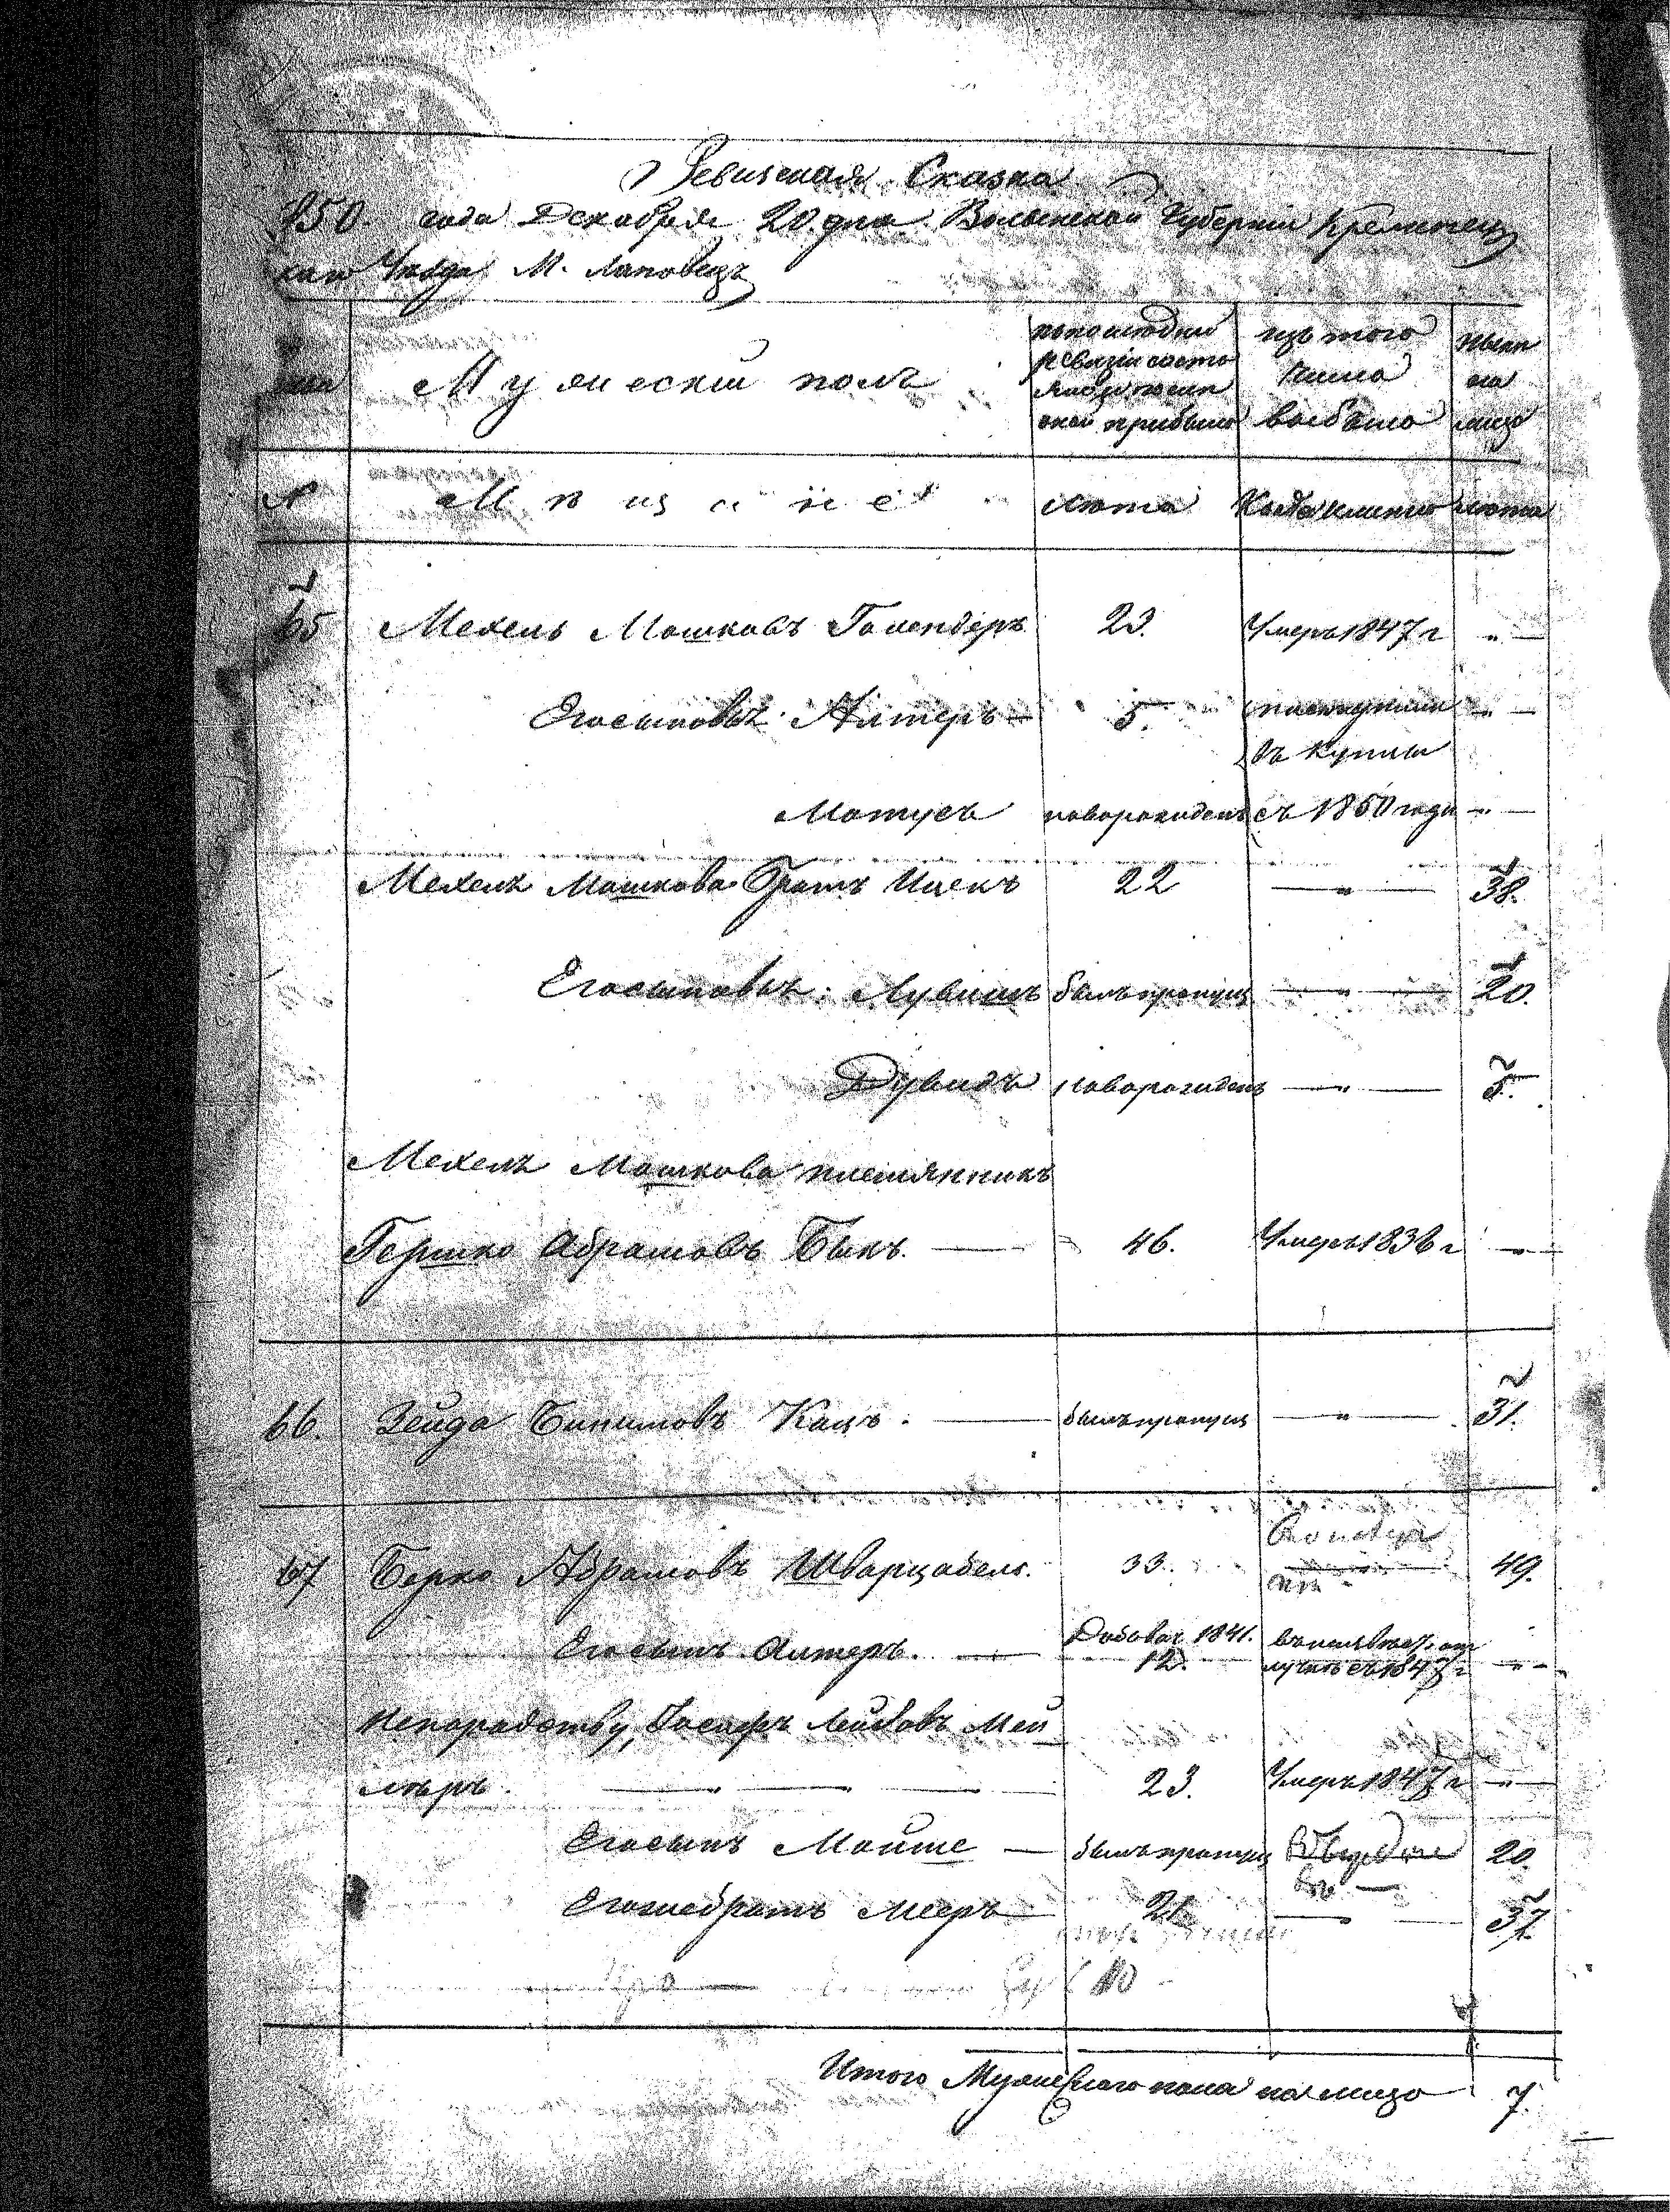 Ревизская Сказка
1850. года Декабря 20. дня Волынской Губернии Кременец
каго Уезда М. Лановецъ
Мужеский полъ
по последней ревизии состо
яло и после
оной прибыло
изъ того
числа
выбыло
ныне
на
лицо
№ Мещане лета Когда именно лета
65 Мехель Мошковъ Голендеръ 23. Умеръ 1847 г "
Егосыновья: Алтеръ 5. "
въ купцы
Мотусь новорожденъ съ 1850 года "
Мехеля Мошкова Братъ Ицекъ 22 " 38.
Егосыновья: Лувишъ былъ пропущ " 20.
Дувидъ новорожденъ " 5.
Мехеля Мошкова племянникъ
Гершко Абрамовъ Быкъ. 46. Умеръ 1836 г "
66. Зейда Бинимовъ Кацъ. былъ пропущ " 31.
67 Берко Абрамовъ Шварцабель. 33. 49.
Егосынъ Алтеръ. Добавоч. 1841.
12. съ 1847 г "
Непородству, Іосифъ Лейбовъ Мей
леръ. 23. Умеръ 1847 г "
Егосынъ Мойше былъ пропущ 20.
Егожебратъ Мееръ 21 " 37.
Итого Мужескаго пола на лицо 7.